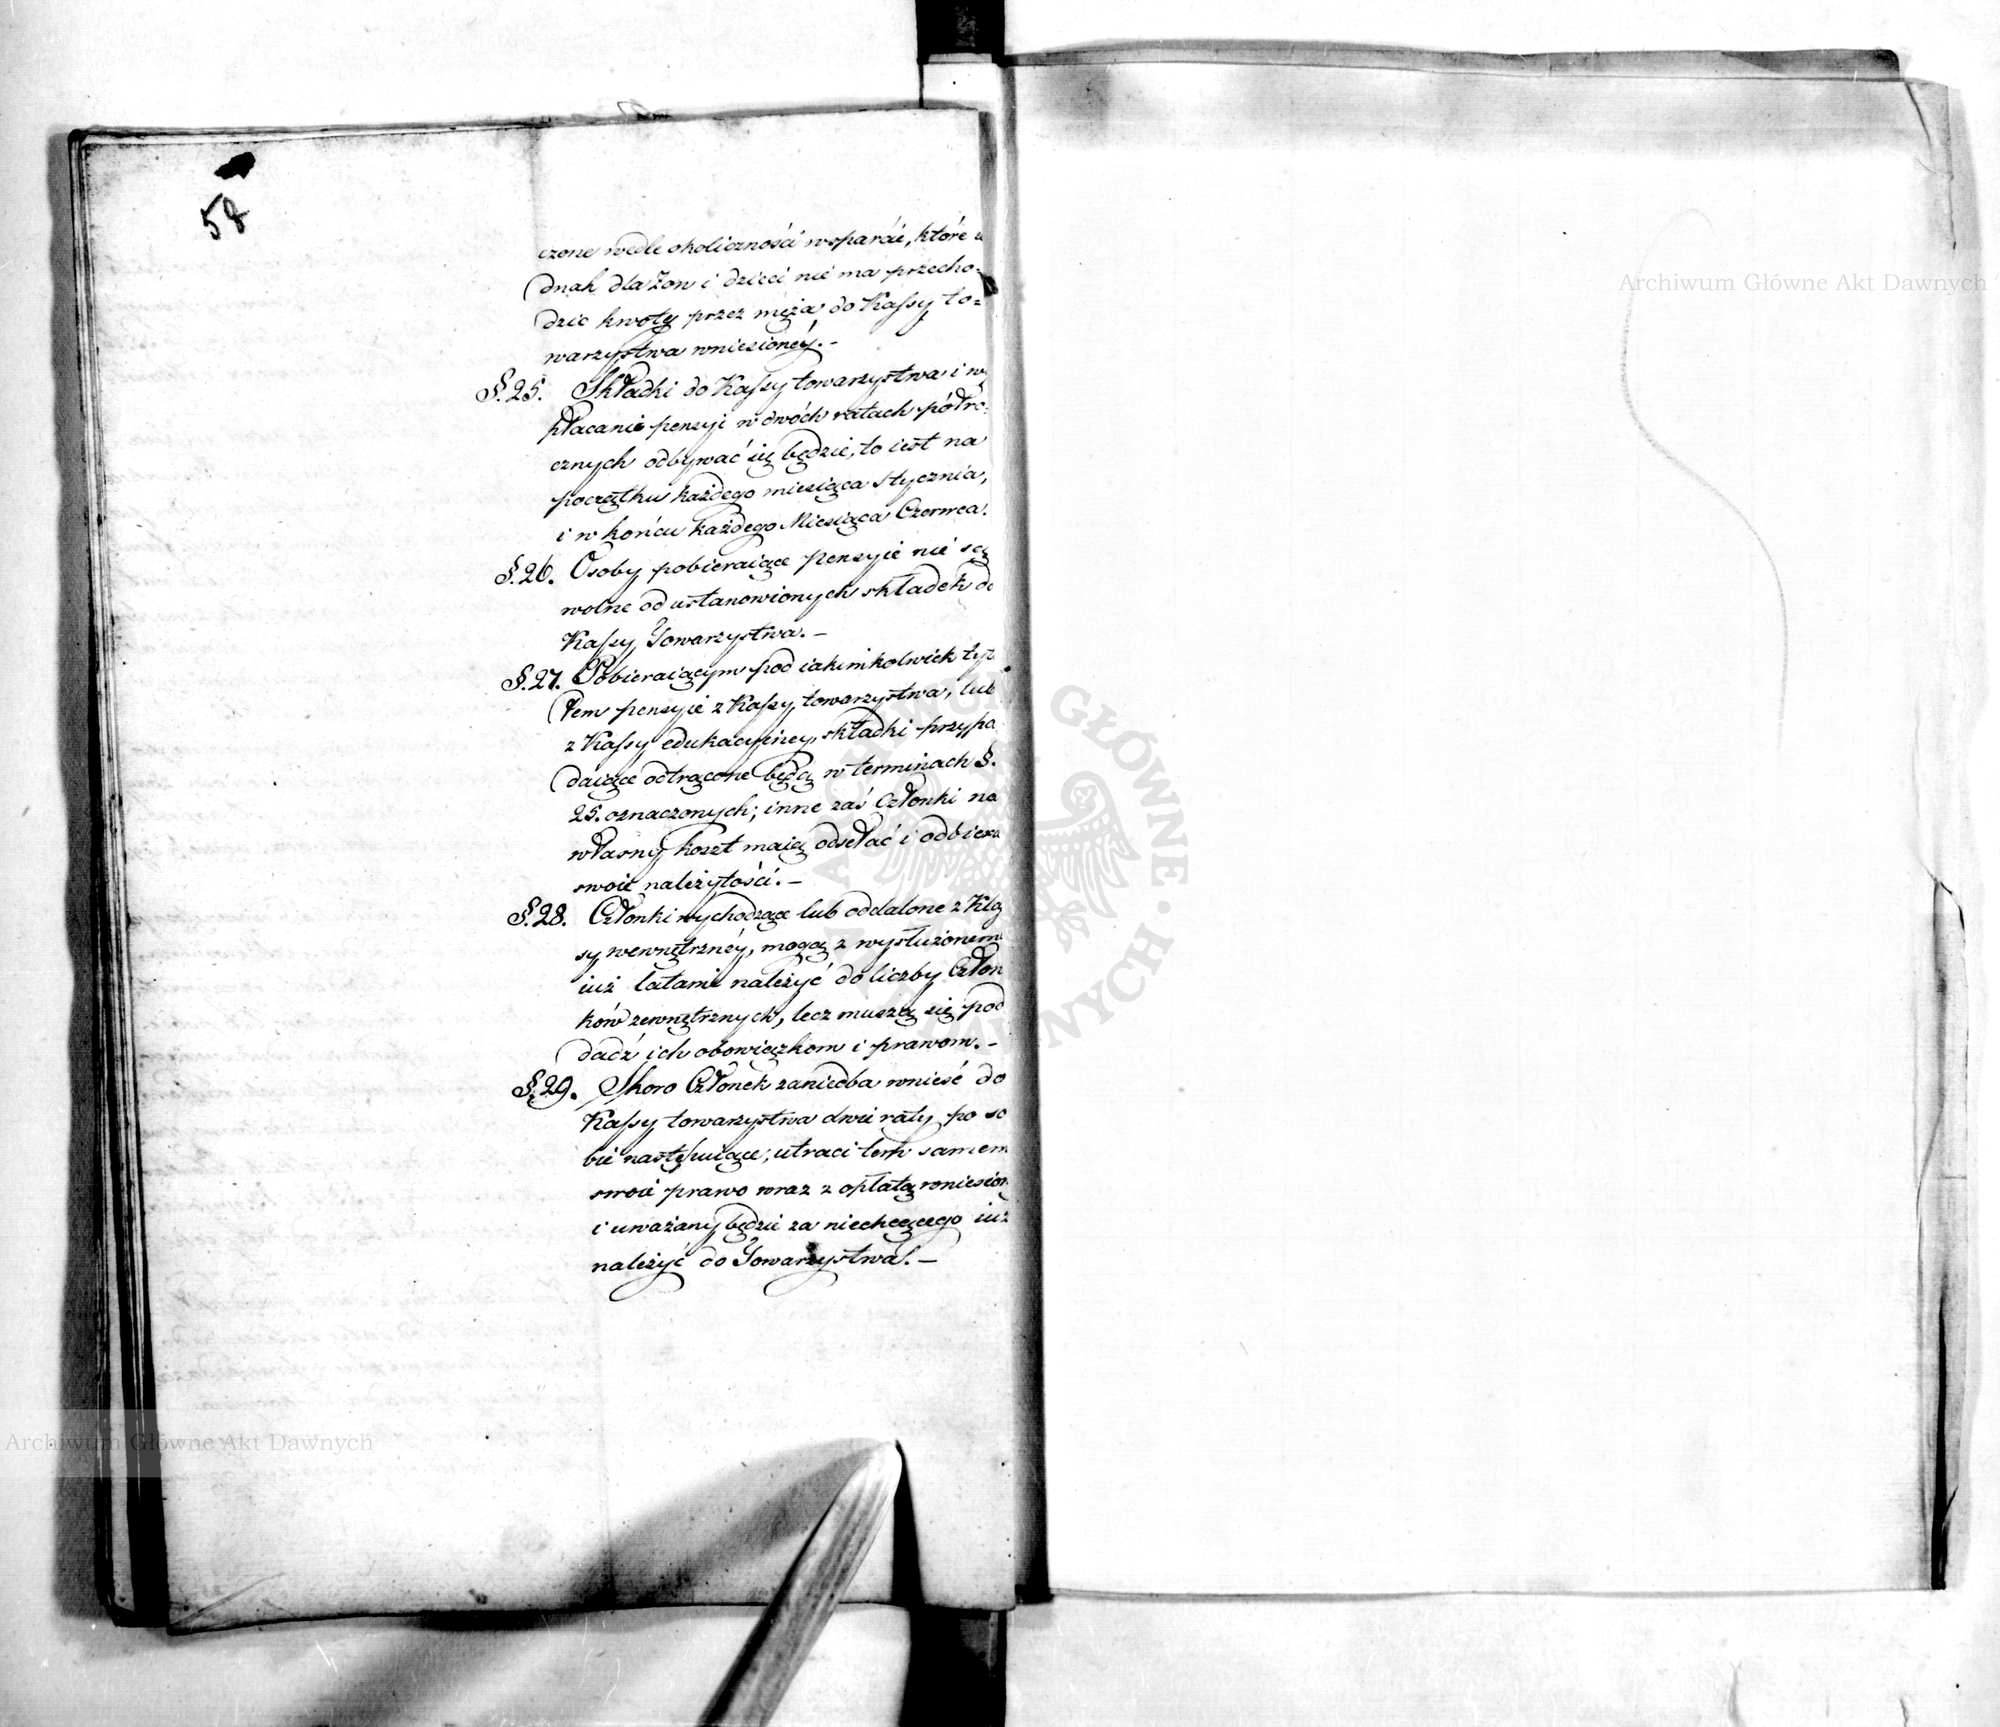 58
czone wedle okoliczności wsparcie, które
dnak dla Żon i dzieci nie ma przecho-
dzic kwoty przez męża do Kassy to=
warzystwa wniesionéy. -
§. 25. Składki do Kassy towarzystwa i wy
płacanie pensyi w dwóch ratach półro-
cznych odbywać się będzie, to iest na
początku każdego miesiąca Stycznia,
i w końcu każdego Miesiąca Czerwca.
§. 26. Osoby pobieraiące pensyie nie są
wolne od ustanowionych składek do
Kassy Towarzystwa. -
§. 27. Pobieraiącym pod iakimkolwiek tyt
łem pensyie z Kassy towarzystwa, lub
z Kassy edukacyiney, składki przypa
daiące odtrącone będą w terminach §.
25. oznaczonych; inne zaś Członki na
własny koszt maią odsełać i odbiera
swoie należytości. -
§. 28. Członki wychodzące lub oddalone z Klas
sy wewnętrznéy, mogą z wysłużonemi
iuż latami należyć do liczby Człon
ków zewnętrznych, lecz muszą się pod
dadź ich obowiązkom i prawom. -
§. 29. Skoro Członek zaniedba wnieść do
Kassy towarzystwa dwie raty po so
bie następuiące, utraci tem samem
swoie prawo wraz z opłatą wniesion
i uważany będzie za niechcącego iuż
należyć do Towarzystwa. -
Archiwum Główne Akt Dawnych
Archiwum Główne Akt Dawnych